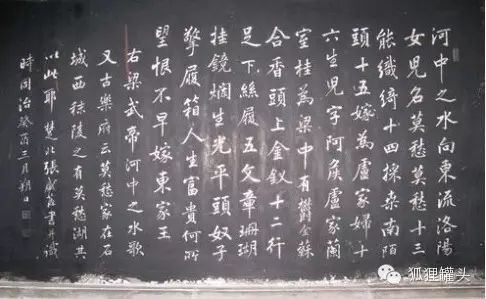 河中之水向東流洛陽
女兒名莫愁莫愁十三
能織綺十四採桑南陌
頭十五嫁為盧家婦十
六生兒字阿矦盧家蘭
室桂為梁中有鬱金蘇
合香頭上金釵十二行
足下絲履五文章珊瑚
挂鏡爛生光平頭奴子
擎履箱人生富貴何所
望恨不早嫁東家王
右梁武帝河中之水歌
又古樂府云莫愁家在石
城西秣陵之有莫愁湖其
以此耶楚北張書并識
時同治癸酉三月朔日
狐狸罐头